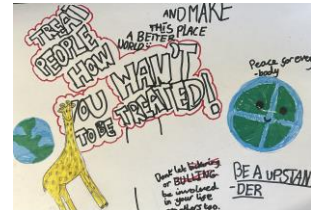 TREAT
PEOPLE
HOW
YOU WAN'T
TO BE TREATED!
AND MAKE
THIS PLACE
A BETTER
WORLD
Peace for every
-body
BE A UPSTAN
-DER
Dont let
or BULLING
be involved
in your life
others too.